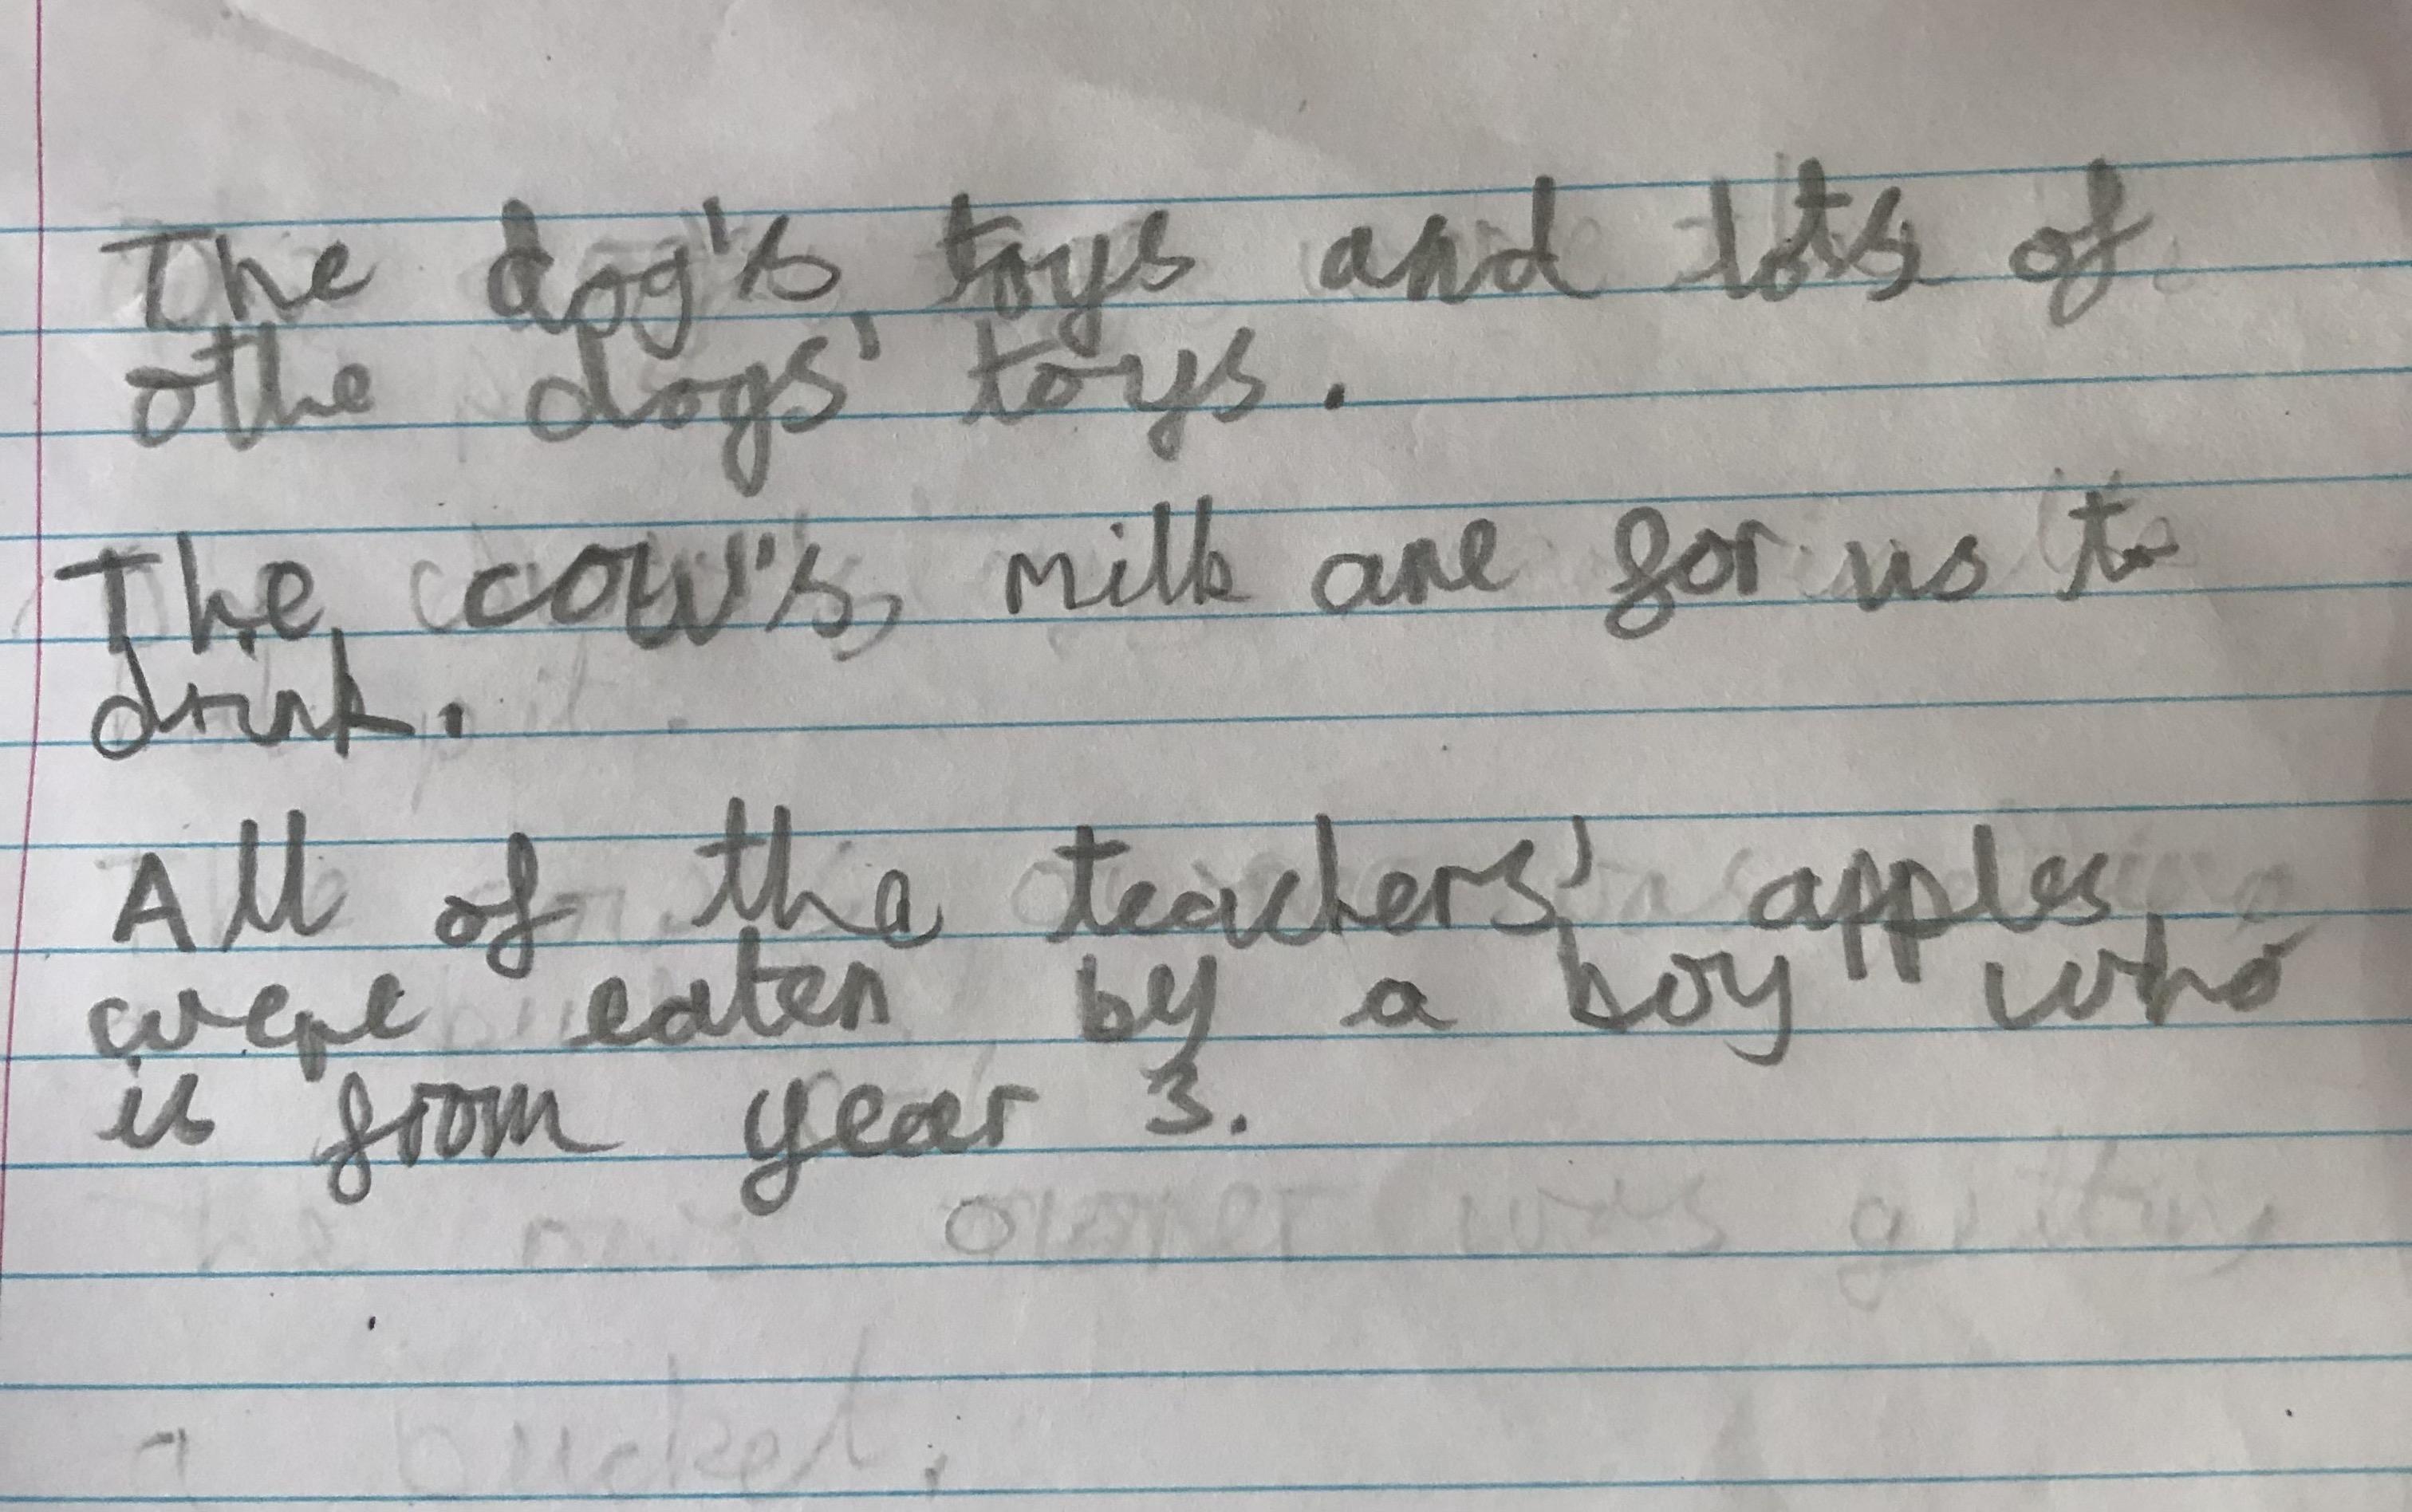 The dog's toys and lots of
othe dogs' toys.
The cow's milk are for us to
drink.
All of the teachers' apples
were eaten by a boy who
is from year 3.